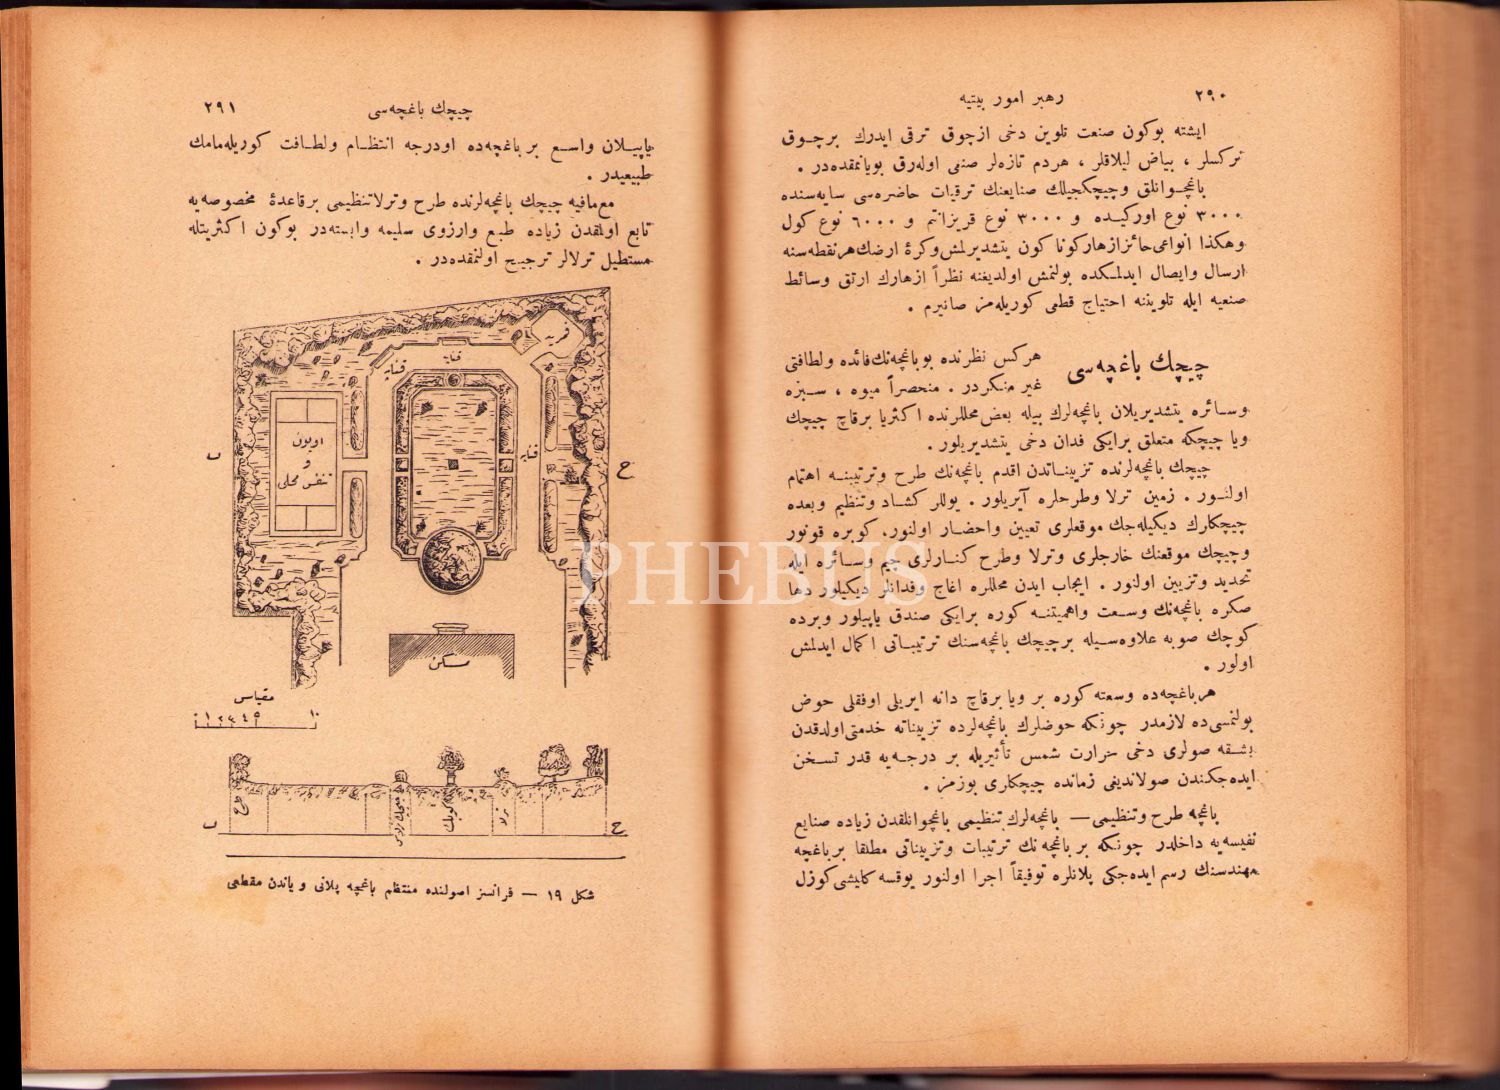 ٢٩٠
رهبر امور بیتیه
ایشته بوكون صنعت تلوین دخی ازچوق ترقی ایدرك برچوق
نركسلر ، بیاض لیلاقلر ، هردم تازه‌لر صنعی اوله‌رق بویانمقده‌در .
باغچوانلق وچیچكجیلك صنایعنك ترقیات حاضره‌سی سایه‌سنده
٣٠٠٠ نوع اوركیده و ٣٠٠٠ نوع قریزانتم و ٦٠٠٠ نوع كول
وهكذا انواعی حائز ازهار كوناكون یتشدیرلمش وكرهٔ ارضك هر نقطه‌سنه
ارسال وایصال ایدلمكده بولنمش اولدیغنه نظراً ازهارك ارتق وسائط
صنعیه ایله تلویننه احتیاج قطعی كوریله‌مز صانیرم .
چیچك باغچه‌سی
هركس نظرنده بو باغچه‌نك فائده ولطافتی
غیر منكردر . منحصراً میوه ، سبزه
وسائره یتشدیریلان باغچه‌لرك بیله بعض محللرنده اكثریا برقاچ چیچك
ویا چیچكه متعلق برایكی فدان دخی یتشدیریلور .
چیچك باغچه‌لرنده تزییناتدن اقدم باغچه‌نك طرح وترتیبنه اهتمام
اولنور . زمین ترلا وطرحلره آیریلور . یوللر كشاد وتنظیم وبعده
چیچكلرك دیكیله‌جك موقعلری تعیین واحضار اولنور. كوبره قونور
وچیچك موقعنك خارجلری وترلا وطرح كنارلری چیم وسائره ایله
تحدید وتزیین اولنور . ایجاب ایدن محللره اغاج وفدانلر دیكیلور دها
صكره باغچه‌نك وسعت واهمیتنه كوره برایكی صندق یاپیلور وبرده
كوچك صوبه علاوه‌سیله برچیچك باغچه‌سنك ترتیباتی اكمال ایدلمش
اولور .
هر باغچه‌ده وسعته كوره بر ویا برقاچ دانه ایریلی اوفقلی حوض
بولنمسی‌ده لازمدر چونكه حوضلرك باغچه‌لرده تزییناته خدمتی اولدقدن
بشقه صولری دخی حرارت شمس تأثیریله بر درجه‌یه قدر تسخن
ایده‌جكندن صولاندیغی زمانده چیچكلری بوزمز .
باغچه طرح وتنظیمی — باغچه‌لرك تنظیمی باغچوانلقدن زیاده صنایع
نفیسه‌یه داخلدر چونكه بر باغچه‌نك ترتیبات وتزییناتی مطلقا بر باغچه
مهندسنك رسم ایده‌جكی پلانلره توفیقاً اجرا اولنور یوقسه كلیشی كوزل
چیچك باغچه‌سی
٢٩١
یاپیلان واسع بر باغچه‌ده اودرجه انتظام ولطافت كوریله‌مامك
طبیعیدر .
مع‌مافیه چیچك باغچه‌لرنده طرح وترلا تنظیمی برقاعدهٔ مخصوصه‌یه
تابع اولمقدن زیاده طبع وارزوی سلیمه وابسته‌در بوكون اكثریتله
مستطیل ترلالر ترجیح اولنمقده‌در .
قنایه
قنایه
قنایه
اویون
و
تنفس محلی
ب
ح
مسكن
مقیاس
١٠ ٥ ٤ ٣ ٢ ١ ٠
طرح
ب
ح
شكل ١٩ — فرانسز اصولنده منتظم باغچه پلانی و یاندن مقطعی
PHEBUS